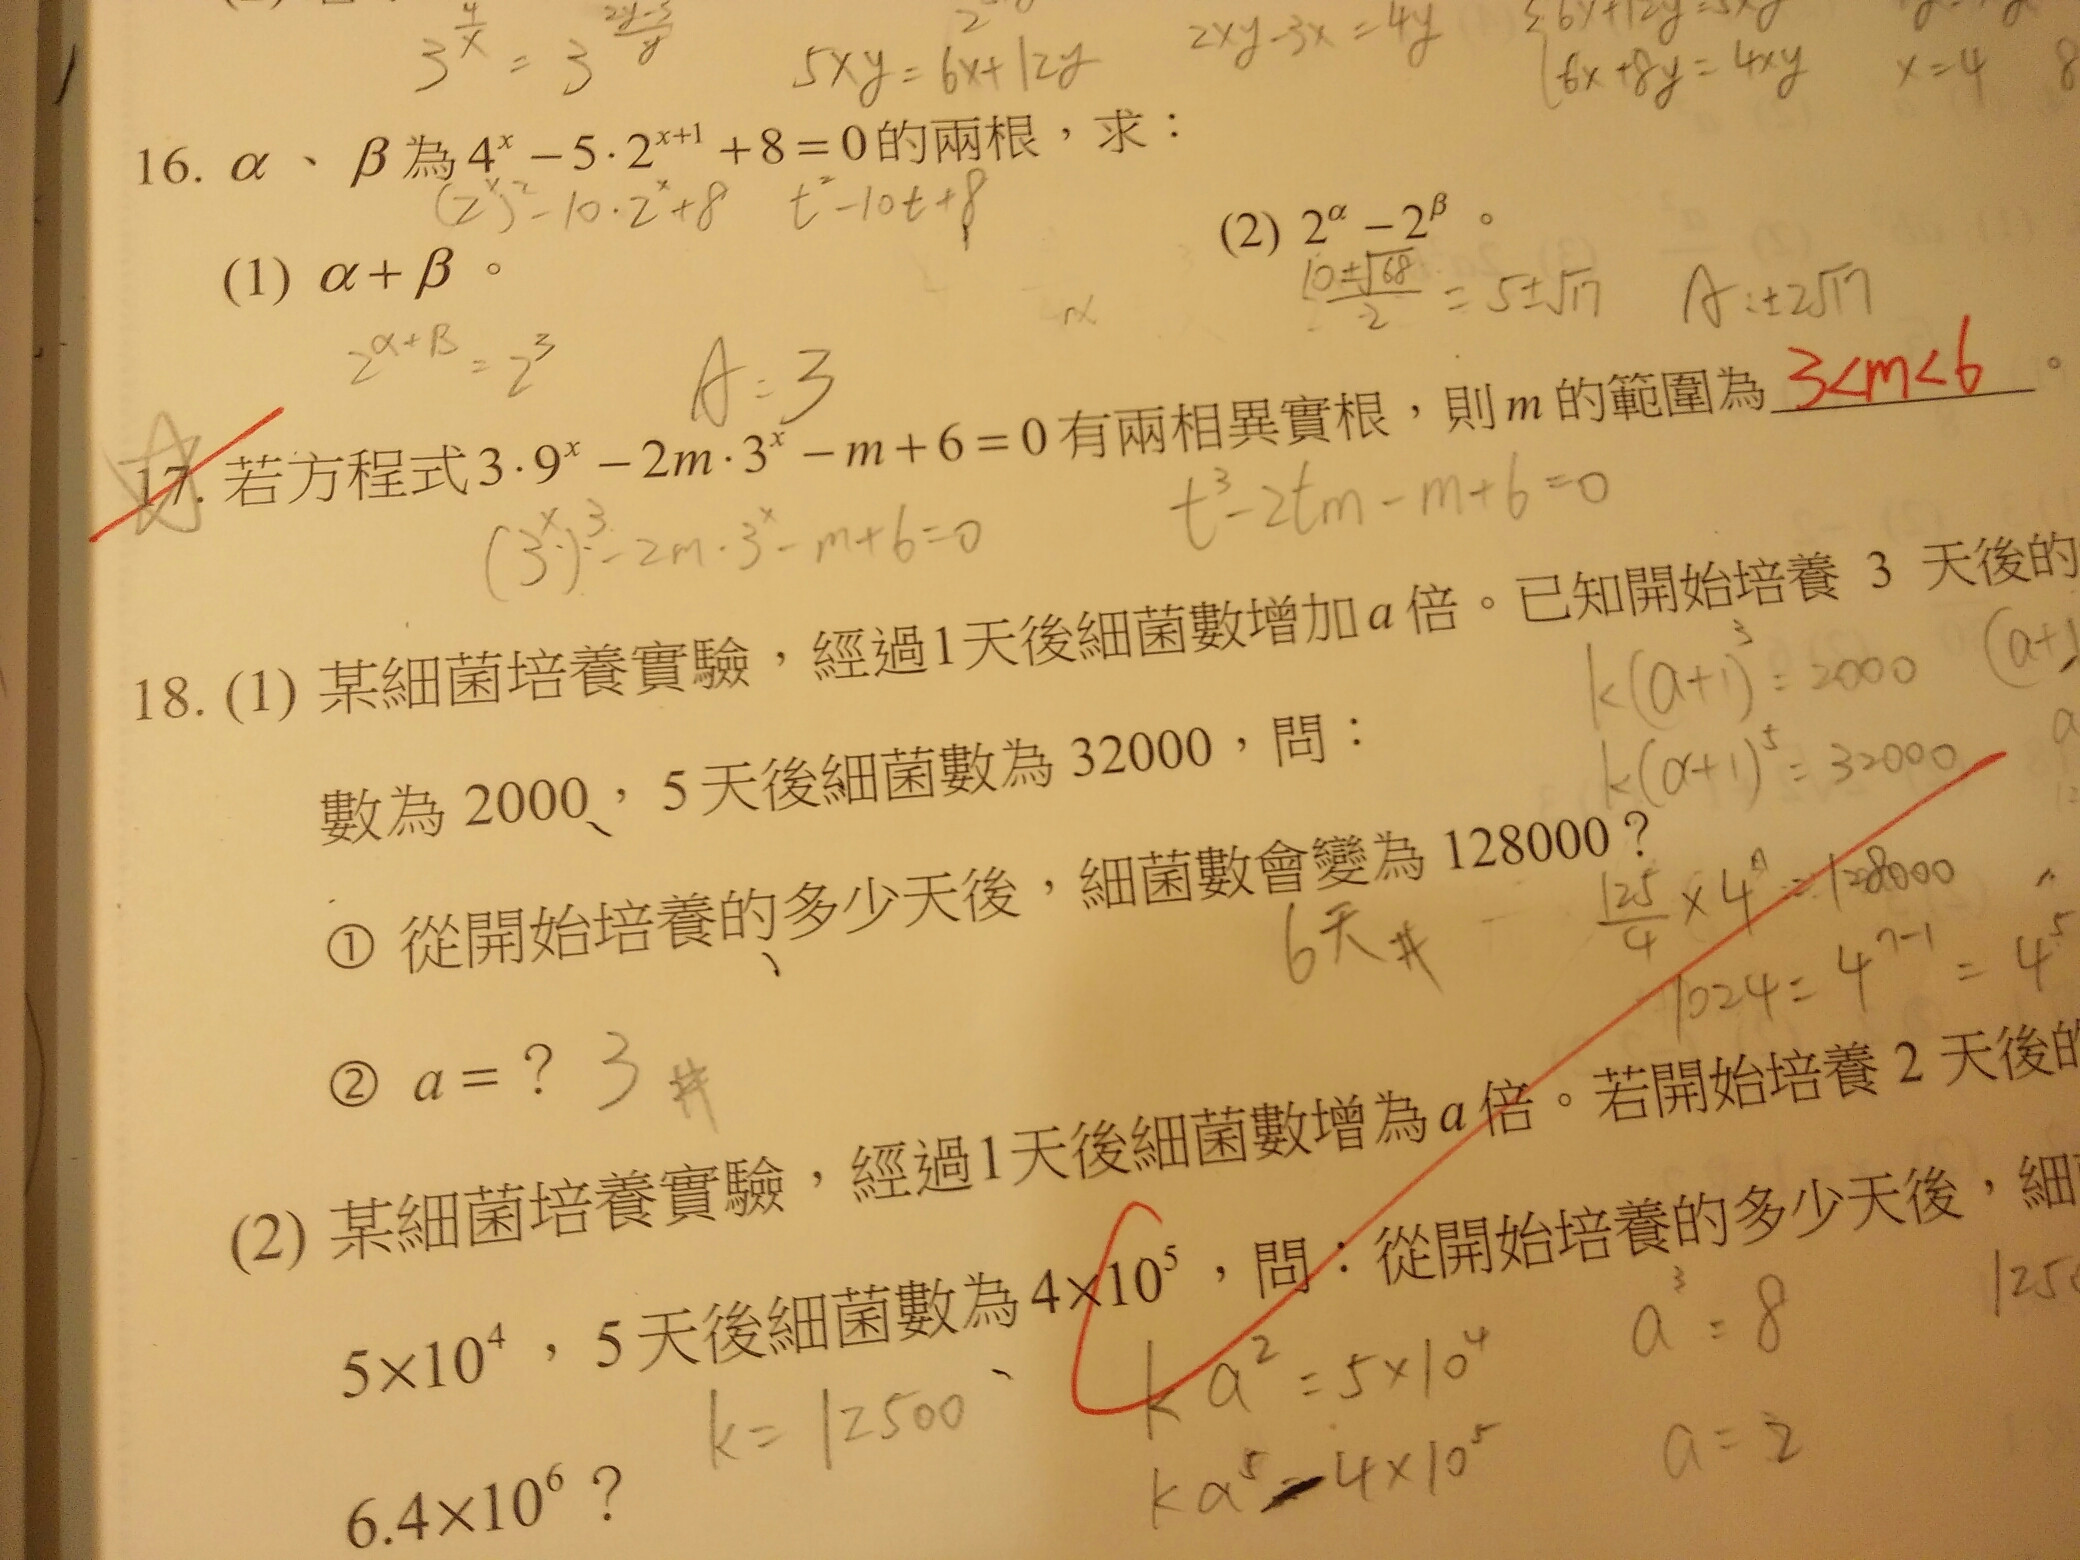 3^(4/x) = 3^((2y-3)/y) 5xy = 6x+12y 2xy-3x = 4y 6x+8y = 4xy x=4 8
16. α、β為4^x − 5·2^(x+1) + 8 = 0的兩根，求：
(2^x)²-10·2^x+8 t²-10t+8
(1) α+β。 (2) 2^α − 2^β。
2^(α+β) = 2³ A:3 (10±√68)/2 = 5±√17 A:±2√17
17. 若方程式3·9^x − 2m·3^x − m + 6 = 0有兩相異實根，則m的範圍為 3<m<6 。
(3^x)³-2m·3^x-m+6=0 t³-2tm-m+6=0
18. (1) 某細菌培養實驗，經過1天後細菌數增加a倍。已知開始培養 3 天後的
k(a+1)³=2000 (a+1
數為 2000，5天後細菌數為 32000，問：
k(a+1)⁵=32000
① 從開始培養的多少天後，細菌數會變為 128000？
6天# 125/4 ×4^n=128000
1024=4^(n-1)=4⁵
② a = ？ 3 #
(2) 某細菌培養實驗，經過1天後細菌數增為a倍。若開始培養 2 天後的
5×10⁴，5天後細菌數為4×10⁵，問：從開始培養的多少天後，細
k=12500 ka²=5×10⁴ a³=8
6.4×10⁶？ ka⁵=4×10⁵ a=2